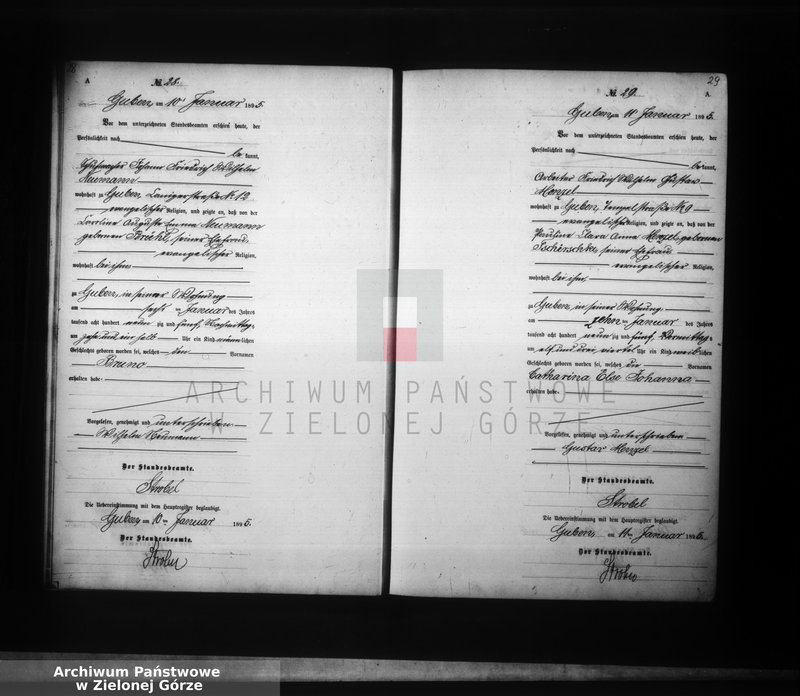 A
№ 28.
Guben am 10 Januar 1895.
Vor dem unterzeichneten Standesbeamten erschien heute, der
Persönlichkeit nach
be kannt,
Johann Friedrich Wilhelm
Neumann
wohnhaft zu Guben, № 12
evangelischer Religion, und zeigte an, daß von der
Auguste Emma Neumann
gebornen seiner Ehefrau
evangelischer Religion,
wohnhaft bei ihm
zu Guben, in seiner Wohnung
am Januar des Jahres
tausend acht hundert neun zig und fünf, Nachmittags
um Uhr ein Kind männlichen
Geschlecht geboren worden sei, welches den Vornamen
Bruno
erhalten habe.
Vorgelesen, genehmigt und unterschrieben
Wilhelm Neumann
Der Standesbeamte.
Strobel
Die Uebereinstimmung mit dem Hauptregister beglaubigt.
Guben am 10 ten Januar 1895.
Der Standesbeamte.
Strobel
29
№ 29.
A.
Guben am 11 Januar 1895.
Vor dem unterzeichneten Standesbeamten erschien heute, der
Persönlichkeit nach
be kannt,
Arbeiter Friedrich Wilhelm Gustav
Menzel
wohnhaft zu Guben, Tempelstraße № 9
evangelischer Religion, und zeigte an, daß von der
Pauline Clara Anna Menzel gebornen
Tschirschke, seiner Ehefrau
evangelischer Religion,
wohnhaft bei ihm,
zu Guben, in seiner Wohnung
am zehn ten Januar des Jahres
tausend acht hundert neun zig und fünf, Vormittags
um elf und drei viertel Uhr ein Kind weiblichen
Geschlecht geboren worden sei, welches die Vornamen
Catharina Else Johanna
erhalten habe.
Vorgelesen, genehmigt und unterschrieben
Gustav Menzel
Der Standesbeamte.
Strobel
Die Uebereinstimmung mit dem Hauptregister beglaubigt.
Guben am 11 ten Januar 1895.
Der Standesbeamte.
Strobel
ARCHIWUM PAŃSTWOWE
W ZIELONEJ GÓRZE
Archiwum Państwowe
w Zielonej Górze